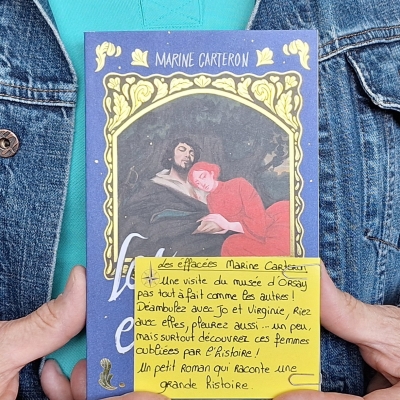 MARINE CARTERON
les effacées Marine Carteron
Une visite du musée d'Orsay
pas tout à fait comme les autres!
Déambulez avec Jo et Virginie, Riez
avec elles, pleurez aussi... un peu,
mais surtout découvrez ces femmes
oubliées par l'histoire!
Un petit Roman qui raconte une
grande histoire.